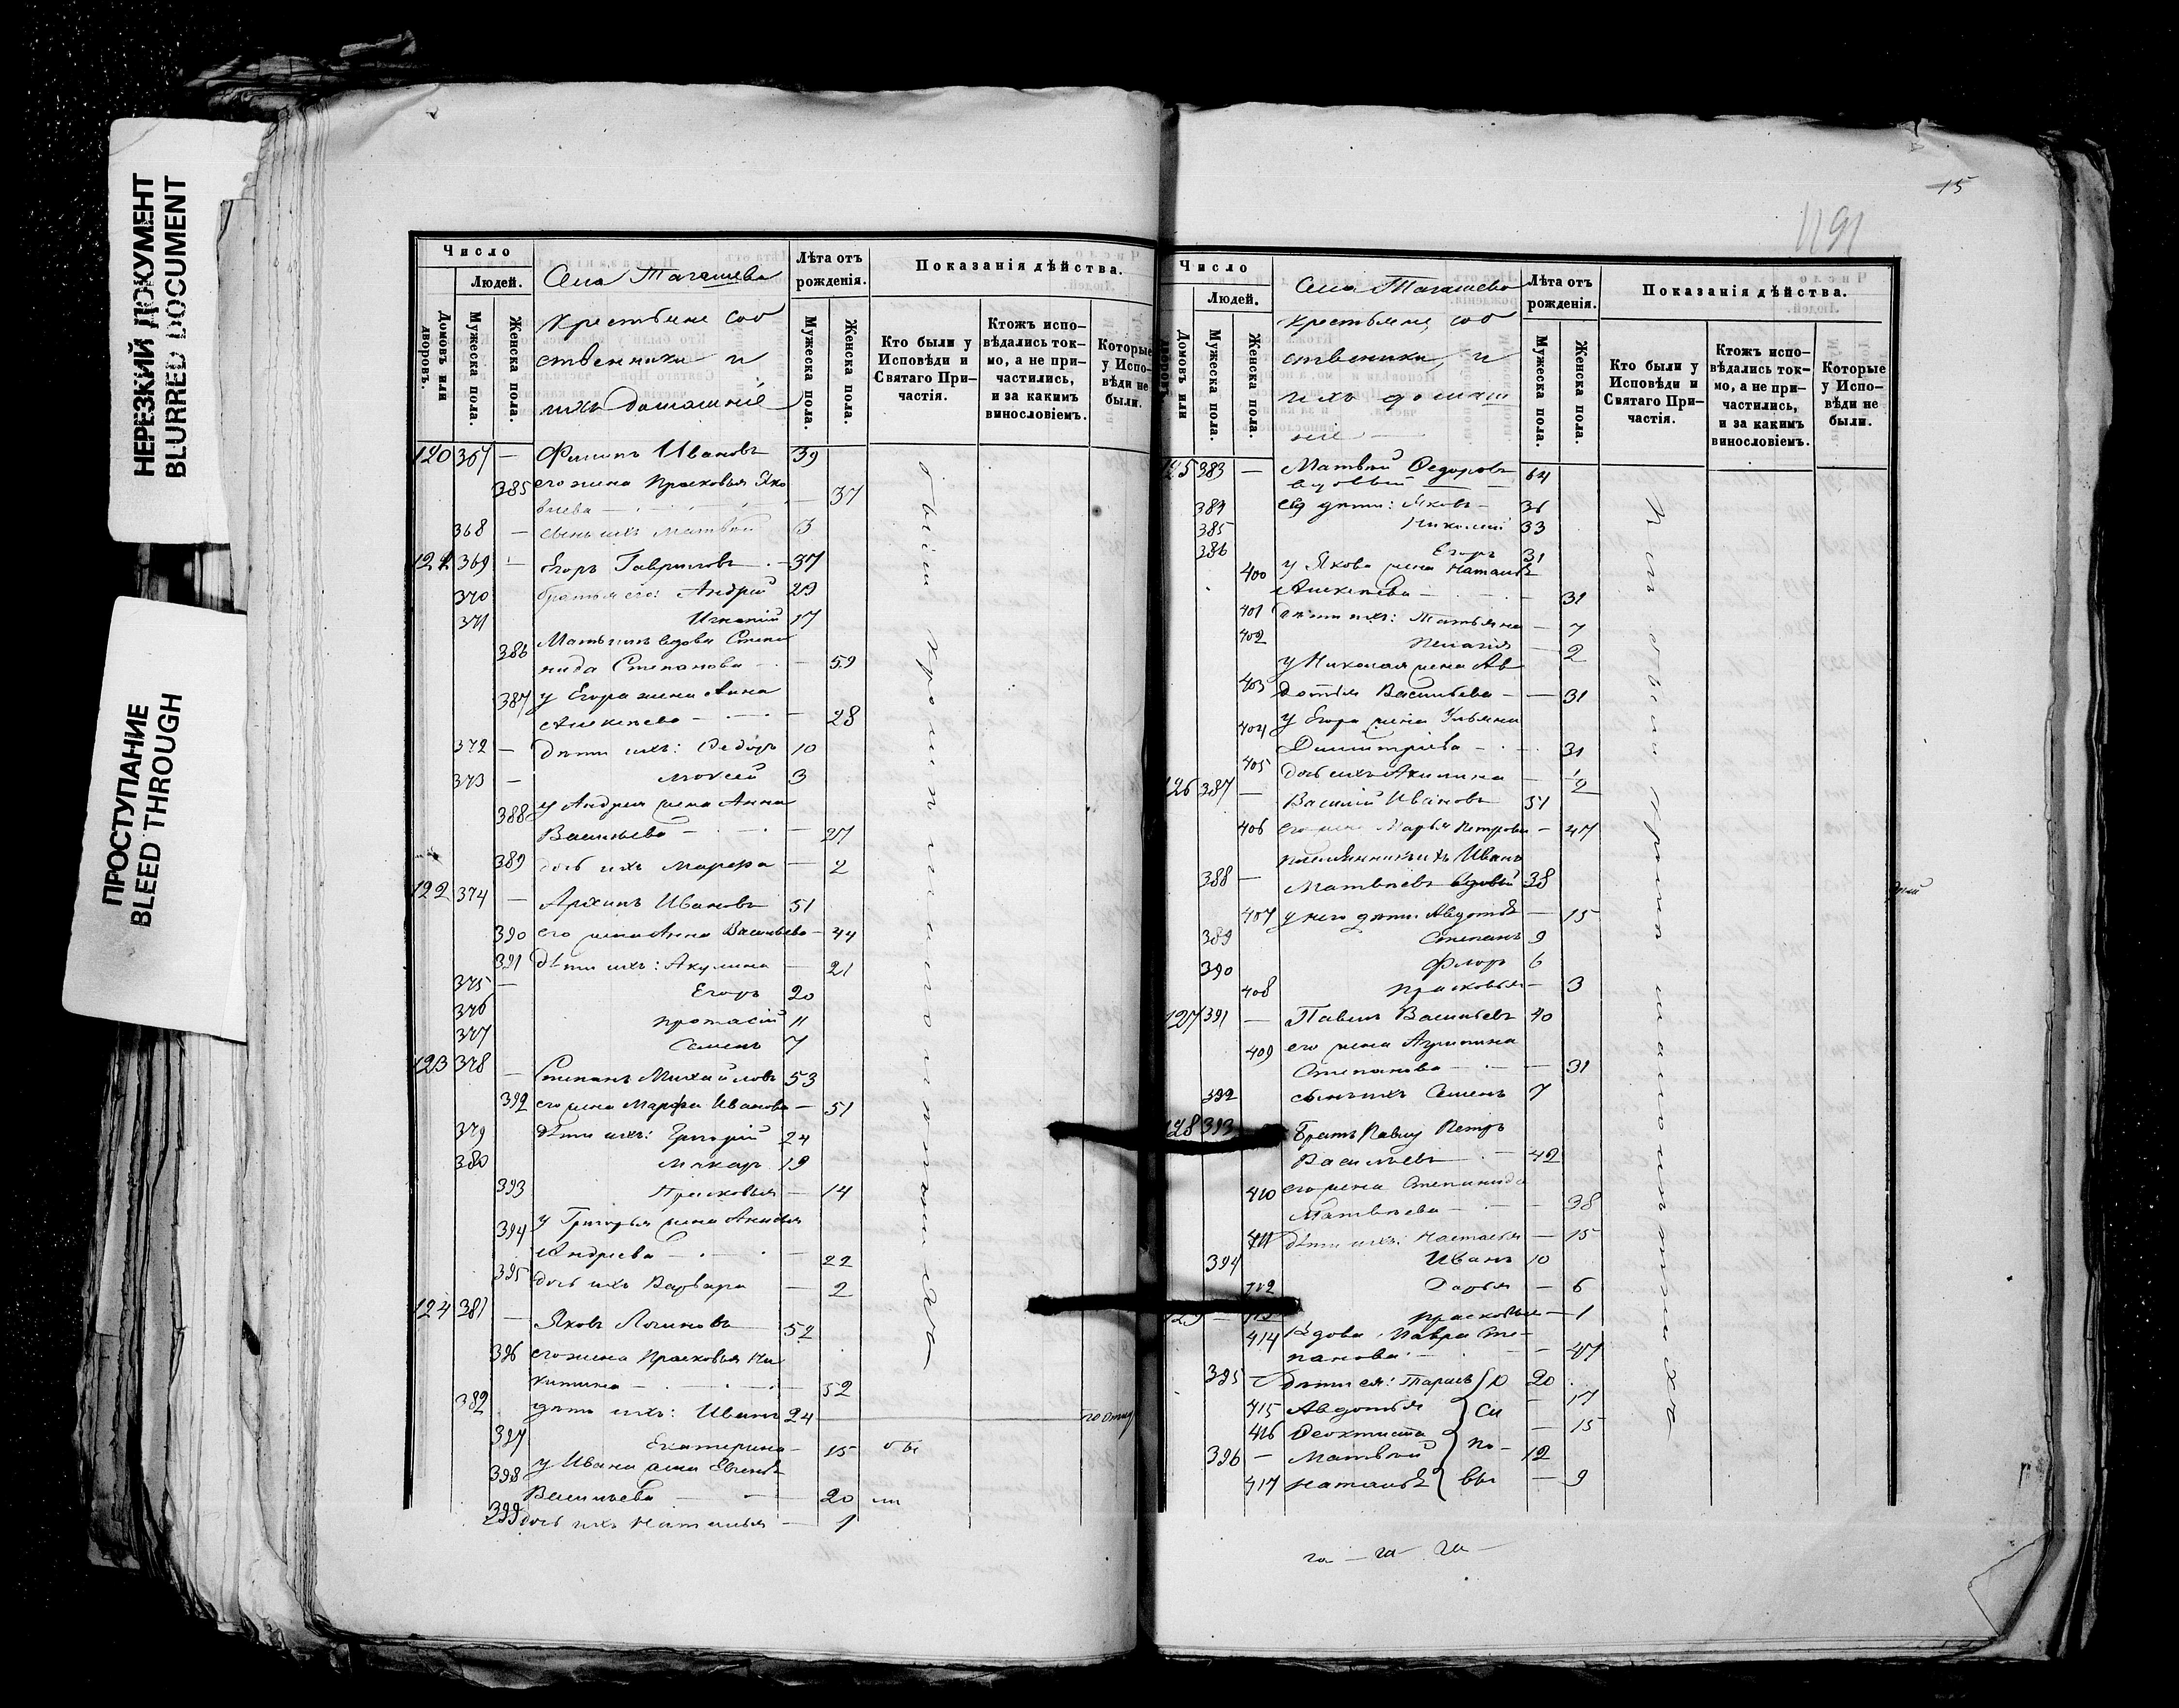 НЕРЕЗКИЙ ДОКУМЕНТ
BLURRED DOCUMENT
ПРОСТУПАНИЕ
BLEED THROUGH
Число
Людей.
Домовъ или дворовъ.
Мужеска пола.
Женска пола.
Села Тагашева
крестьяне соб
ственники и
ихъ домашніе
Лѣта отъ рожденія.
Мужеска пола.
Женска пола.
Показанія дѣйства.
Кто были у Исповѣди и Святаго Причастія.
Ктожъ исповѣдались токмо, а не причастились, и за какимъ винословіемъ.
Которые у Исповѣди не были.
120 367 — Филипъ Ивановъ 39
385 его жена Прасковья Яко
влева — 37
368 — сынъ ихъ Матвѣй 3
121 369 — Егоръ Гавриловъ 37
370 братья его: Андрей 29
371 Игнатій 17
386 Мать ихъ вдова Степа
нида Степанова — 59
387 у Егора жена Анна
Алексѣева — 28
372 — дѣти ихъ: Ѳедоръ 10
373 — Моисей 3
388 у Андрея жена Анна
Васильева — 27
389 дочь ихъ Марфа — 2
122 374 — Архипъ Ивановъ 51
390 его жена Анна Васильева — 44
391 дѣти ихъ: Акулина — 21
375 — Егоръ 20
376 Протасій 11
377 Семенъ 7
123 378 — Степанъ Михайловъ 53
392 его жена Марфа Иванова — 51
379 дѣти ихъ: Григорій 24
380 Макаръ 19
393 Прасковья — 14
394 у Григорья жена
Андреева — 22
395 дочь ихъ Варвара — 2
124 381 — Яковъ Логиновъ 52
396 его жена Прасковья Ни
китина — 52
382 дѣти ихъ: Иванъ 24
397 Екатерина — 15
398 у Ивана жена
Васильева — 20
399 дочь ихъ Наталья — 1
были
15
1191
Число
Людей.
Домовъ или дворовъ.
Мужеска пола.
Женска пола.
Села Тагашева
крестьяне, соб
ственики, и
ихъ домаш
ніе
Лѣта отъ рожденія.
Мужеска пола.
Женска пола.
Показанія дѣйства.
Кто были у Исповѣди и Святаго Причастія.
Ктожъ исповѣдались токмо, а не причастились, и за какимъ винословіемъ.
Которые у Исповѣди не были.
125 383 — Матвѣй Ѳедоровъ
вдовый 64
384 его дѣти: Яковъ — 36
385 Николай 33
386 Егоръ 31
400 у Якова жена Наталья
Алексѣева — 31
401 дѣти ихъ: Татьяна — 7
402 Пелагія — 2
у Николая жена Ав
403 дотья Васильева — 31
404 у Егора жена Ульяна
Димитріева — 31
405 дочь ихъ Акилина — 1/2
126 387 — Василій Ивановъ 51
406 его жена Марья Петрова — 47
племянникъ ихъ Иванъ
388 — Матвѣевъ вдовый 38
407 у него дѣти: Авдотья — 15
389 Степанъ 9
390 Флоръ 6
408 Прасковья — 3
127 391 — Павелъ Васильевъ 40
409 его жена Агрипина
Степанова — 31
392 сынъ ихъ Семенъ 7
128 393 Братъ Павлу Петръ
Васильевъ — 42
410 его жена Степанида
Матвѣева — 38
411 дѣти ихъ: Настасья — 15
394 Иванъ 10
412 Дарья — 6
413 Прасковья — 1
129 414 Вдова Мавра Сте
панова — 47
395 — дѣти ея: Тарасъ 20
415 Авдотья — 17
416 Ѳеоктиста — 15
396 — Матвѣй 12
417 Наталья — 9